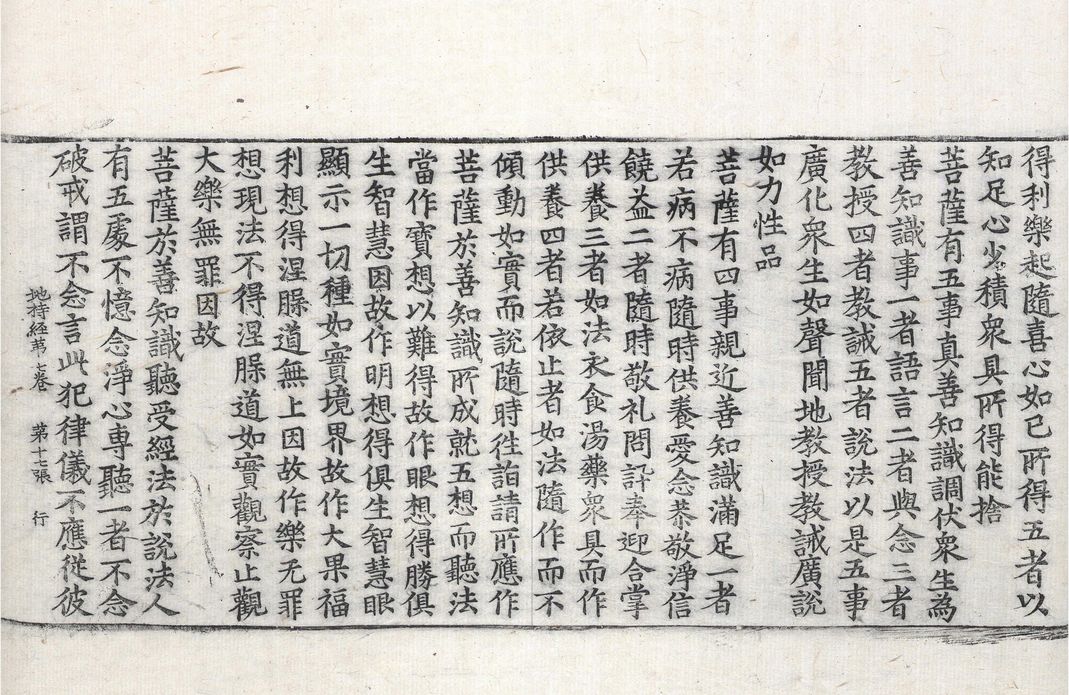 得利樂起隨喜心如己所得五者以
知足心少積衆具所得能捨
菩薩有五事真善知識調伏衆生為
善知識事一者語言二者與念三者
教授四者教誡五者說法以是五事
廣化衆生如聲聞地教授教誡廣說
如力性品
菩薩有四事親近善知識滿足一者
若病不病隨時供養愛念恭敬淨信
饒益二者隨時敬礼問訊奉迎合掌
供養三者如法衣食湯藥衆具而作
供養四者若依止者如法隨作而不
傾動如實而說隨時徃詣請所應作
菩薩於善知識所成就五想而聽法
當作寶想以難得故作眼想得勝俱
生智慧因故作明想得俱生智慧眼
顯示一切種如實境界故作大果福
利想得涅槃道無上因故作樂无罪
想現法不得涅槃道如實觀察止觀
大樂無罪因故
菩薩於善知識聽受經法於說法人
有五處不憶念淨心専聽一者不念
破戒謂不念言此犯律儀不應從彼
地持経苐七卷 第十七張 行